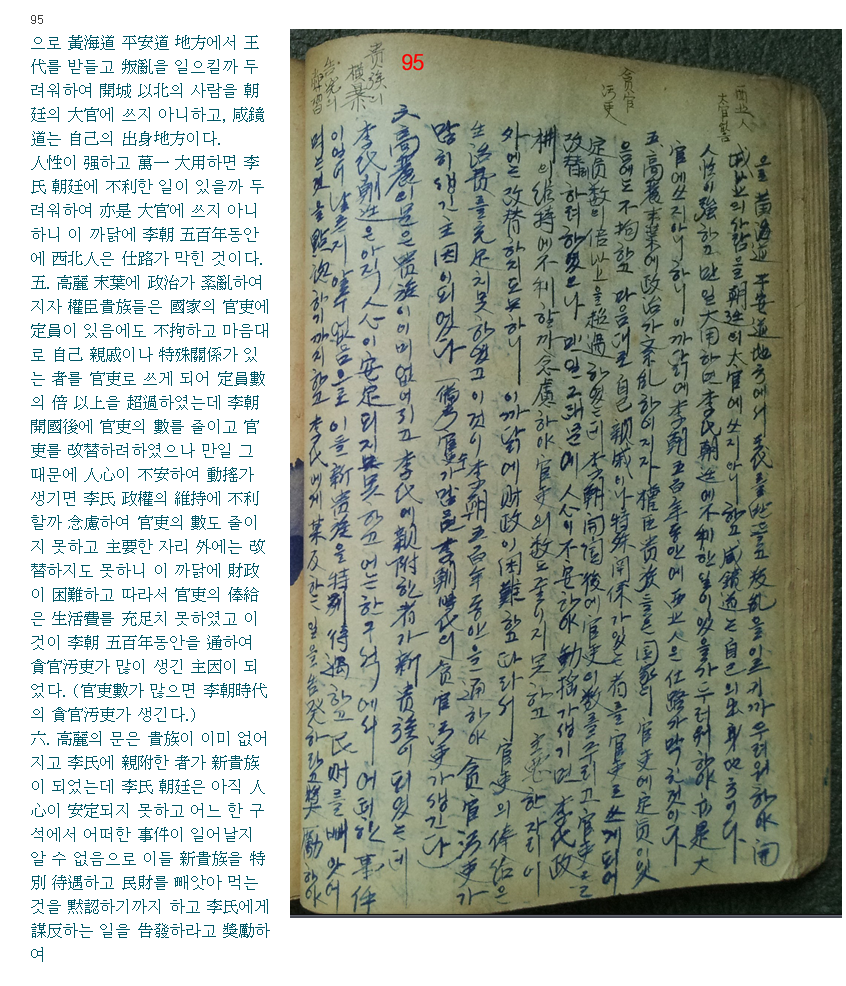 95
으로 黃海道 平安道 地方에서 王
代를 받들고 叛亂을 일으킬까 두
려워하여 開城 以北의 사람을 朝
廷의 大官에 쓰지 아니하고, 咸鏡
道는 自己의 出身地方이다.
人性이 强하고 萬一 大用하면 李
氏 朝廷에 不利한 일이 있을까 두
려워하여 亦是 大官에 쓰지 아니
하니 이 까닭에 李朝 五百年동안
에 西北人은 仕路가 막힌 것이다.
五. 高麗 末葉에 政治가 紊亂하여
지자 權臣貴族들은 國家의 官吏에
定員이 있음에도 不拘하고 마음대
로 自己 親戚이나 特殊關係가 있
는 者를 官吏로 쓰게 되어 定員數
의 倍 以上을 超過하였는데 李朝
開國後에 官吏의 數를 줄이고 官
吏를 改替하려하였으나 만일 그
때문에 人心이 不安하여 動搖가
생기면 李氏 政權의 維持에 不利
할까 念慮하여 官吏의 數도 줄이
지 못하고 主要한 자리 外에는 改
替하지도 못하니 이 까닭에 財政
이 困難하고 따라서 官吏의 俸給
은 生活費를 充足치 못하였고 이
것이 李朝 五百年동안을 通하여
貪官汚吏가 많이 생긴 主因이 되
었다. (官吏數가 많으면 李朝時代
의 貪官汚吏가 생긴다.)
六. 高麗의 문은 貴族이 이미 없어
지고 李氏에 親附한 者가 新貴族
이 되었는데 李氏 朝廷은 아직 人
心이 安定되지 못하고 어느 한 구
석에서 어떠한 事件이 일어날지
알 수 없음으로 이들 新貴族을 特
別 待遇하고 民財를 빼앗아 먹는
것을 黙認하기까지 하고 李氏에게
謀反하는 일을 告發하라고 獎勵하
여
95
西北人
大官禁
貪官
汚吏
貴族의
橫暴
弊習
으로 黃海道 平安道 地方에서 王氏를 받들고 叛亂을 이르키까 두려워하야 開
城以北의 사람을 朝廷의 大官에 쓰지 아니하고 咸鏡道는 自己의 出身地方이다.
人性이 强하고 만일 大用하면 李氏朝廷에 不利한 일이 있을가 두려워하야 亦是 大
官에 쓰지 아니하니 이 까닭에 李朝 五百年동안에 西北人은 仕路가 막힌 것이다
五. 高麗末葉에 政治가 紊亂하여지자 權臣貴族들은 国家의 官吏에 定員이 있
음에도 不拘하고 마음대로 自己 親戚이나 特殊関係가 있는 者를 官吏로 쓰게 되어
定員数의 倍以上을 超過하였는데 李朝開国後에 官吏의 数를 주리고 官吏을
改替하려 하였으나 만일 그 때문에 人心이 不安하야 動搖가 생기면 李氏政
権의 維持에 不利할까 念慮하야 官吏의 数도 줄이지 못하고 主要한 자리
外에는 改替하지도 못하니 이 까닭에 財政이 困難하고 따라서 官吏의 俸給으
生活費를 充足지 못하였고 이것이 李朝五百年동안을 通하야 貪官汚吏가
많히 생긴 主因이 되였다 (官吏数가 많은 李朝時代의 貪官汚吏가 생긴다)
六 高麗의 문은 貴族이 이미 없어지고 李氏에 親附한 者가 新貴族이 되였는데
李氏朝廷은 아직 人心이 安定되지 못하고 어느 한 구석에서 어떠한 事件
이 일어날른지 알 수 없음으로 이들 新貴族을 特別待遇하고 民財를 빼앗어
먹는 것을 黙認하기까지 하고 李氏에게 謀反하는 일을 告発하라고 奬勵하야